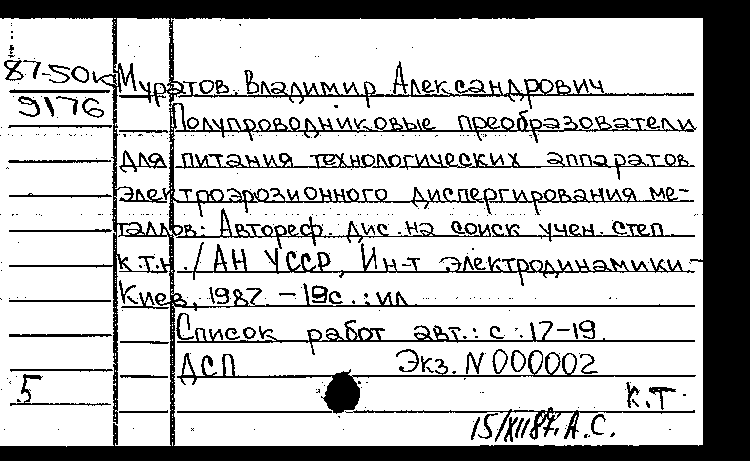 87-50к Муратов Владимир Александрович
9176
Полупроводниковые преобразователи
для питания технологических аппаратов
электроэрозионного диспергирования ме-
таллов: Автореф. дис. на соиск учен. степ.
к.т.н. / АН УССР, Ин-т электродинамики.-
Киев, 1987. - 19с.: ил
Список работ авт.: с. 17-19.
ДСП Экз. N 000002
5 К.Т.
15/XII87. А.С.